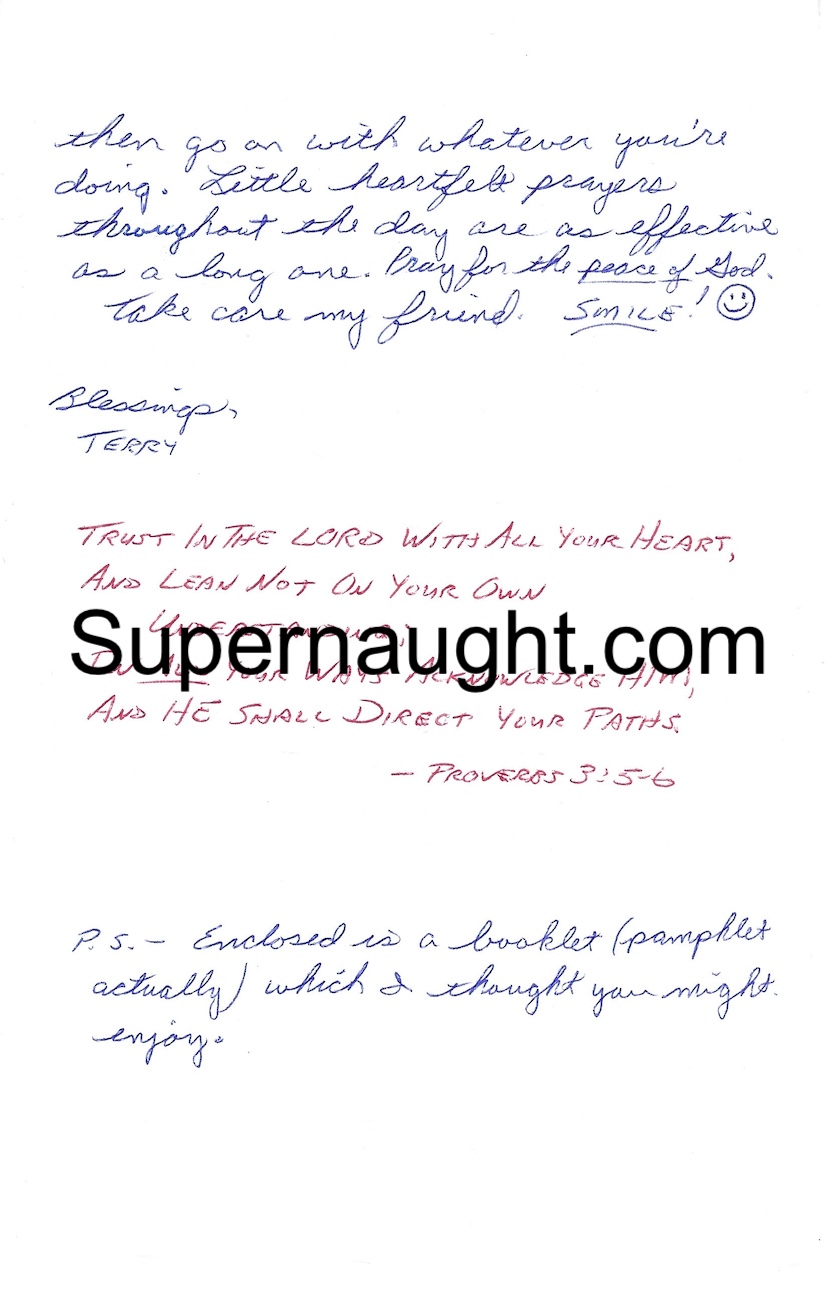 then go on with whatever you're
doing. Little heartfelt prayers
throughout the day are as effective
as a long one. Pray for the peace of God.
Take care my friend. SMILE!
Blessings,
TERRY
TRUST IN THE LORD WITH ALL YOUR HEART,
AND LEAN NOT ON YOUR OWN
UNDERSTANDING;
Supernaught.com
IN ALL YOUR WAYS ACKNOWLEDGE HIM,
AND HE SHALL DIRECT YOUR PATHS.
– PROVERBS 3:5-6
P.S. – Enclosed is a booklet (pamphlet
actually) which I thought you might
enjoy.